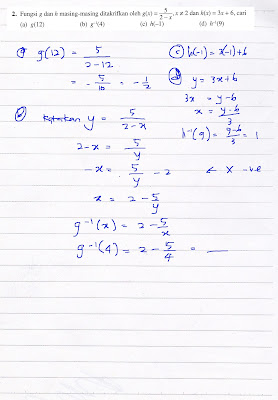 2. Fungsi g dan h masing-masing ditakrifkan oleh g(x) = 5/(2 − x), x ≠ 2 dan h(x) = 3x + 6, cari
(a) g(12) (b) g⁻¹(4) (c) h(−1) (d) h⁻¹(9)
(a) g(12) = 5/(2-12)
= -5/10 = -1/2
(b) Katakan y = 5/(2-x)
2-x = 5/y
-x = 5/y - 2 ← x -ve
x = 2 - 5/y
g⁻¹(x) = 2 - 5/x
g⁻¹(4) = 2 - 5/4 = ___
(c) h(-1) = 3(-1)+6
(d) y = 3x+6
3x = y-6
x = (y-6)/3
h⁻¹(9) = (9-6)/3 = 1